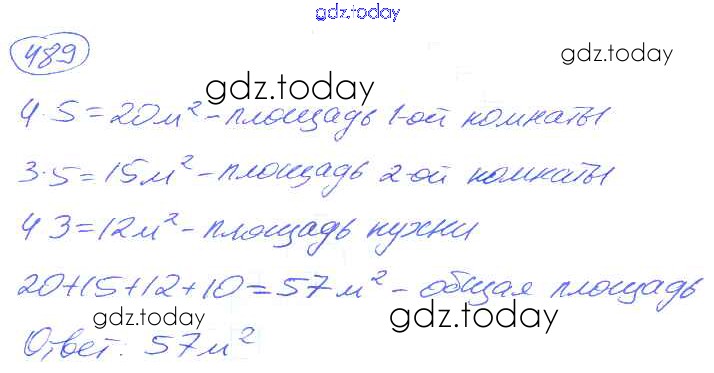 gdz.today
489
gdz.today
gdz.today
4·5=20м²-площадь 1-ой комнаты
gdz.today
3·5=15м²-площадь 2-ой комнаты
4 3=12м²-площадь кухни
20+15+12+10=57м²-общая площадь
gdz.today
gdz.today
Ответ: 57м²